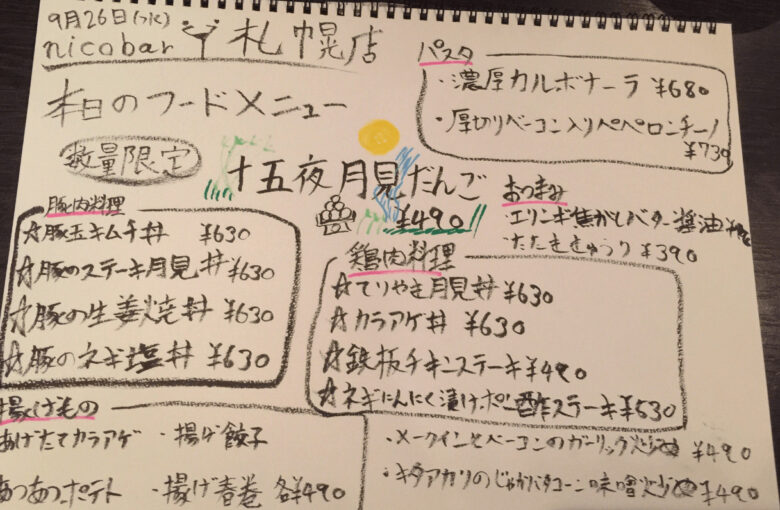 9月26日(水)
nicobar 札幌店
本日のフードメニュー
数量限定
十五夜月見だんご
¥490
パスタ
・濃厚カルボナーラ ¥680
・厚切りベーコン入りペペロンチーノ
¥730
おつまみ
・エリンギ焦がしバター醤油
・たたききゅうり ¥390
豚肉料理
☆豚玉キムチ丼 ¥630
☆豚のステーキ月見丼 ¥630
☆豚の生姜焼丼 ¥630
☆豚のネギ塩丼 ¥630
鶏肉料理
☆てりやき月見丼 ¥630
☆カラアゲ丼 ¥630
☆鉄板チキンステーキ ¥490
☆ネギにんにく漬けポン酢ステーキ ¥530
揚げもの
あげたてカラアゲ ・揚げ餃子
あつあつポテト ・揚げ春巻 各¥490
・メークインとベーコンのガーリック炒め ¥490
・キタアカリのじゃがバタコーン味噌炒め ¥490